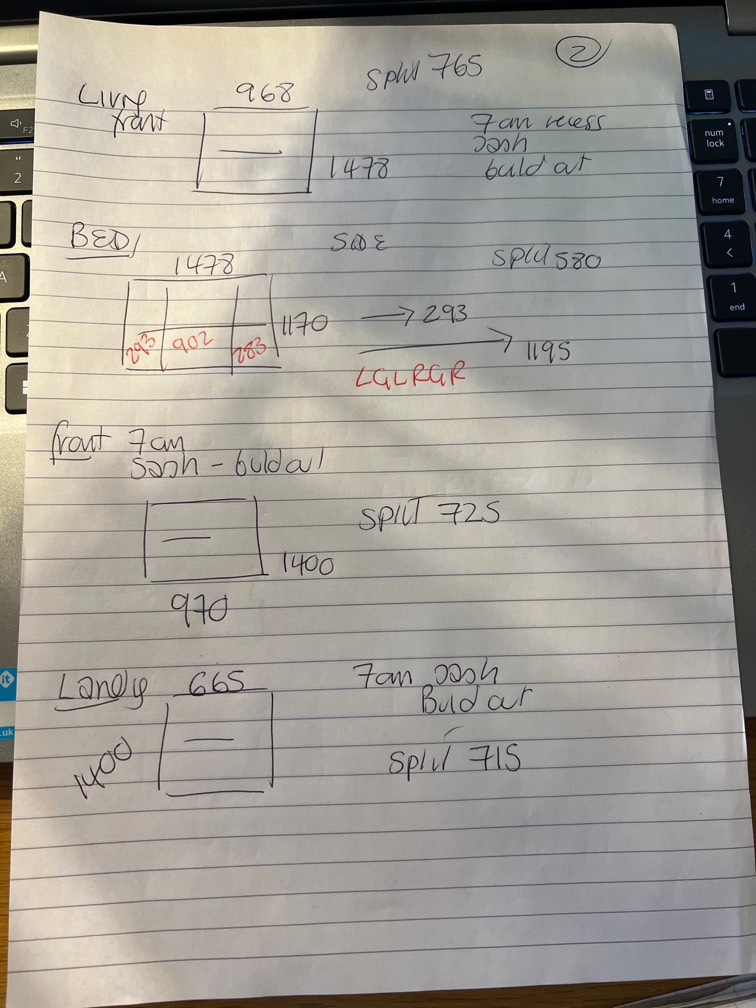 2
Living 968 Split 765
front
1478
7cm recess
sash
build out
BED/ SIDE
1478 Split 580
1170 → 293
293 902 283
→ 1195
LGLRGR
front 7cm
sash - build out
SPLIT 725
1400
970
Landg 665 7cm sash
Build out
1400
Split 715
F2
"
2
A
num
lock
7
home
4
<
1
end
it
.uk